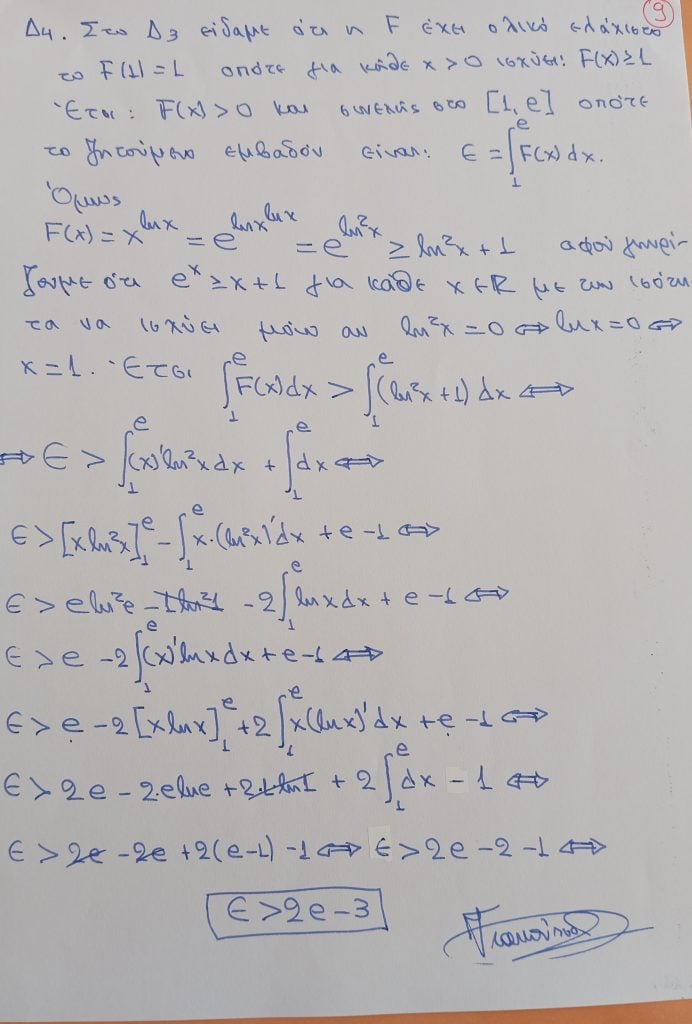 9
Δ4. Στο Δ3 είδαμε ότι η F έχει ολικό ελάχιστο
το F(1)=1 οπότε για κάθε x>0 ισχύει: F(x)≥1
Έτσι: F(x)>0 και συνεχής στο [1,e] οπότε
το ζητούμενο εμβαδόν είναι: E=∫₁ᵉF(x)dx.
Όμως
F(x)=x^{lnx}=e^{lnx^{lnx}}=e^{ln²x}≥ln²x+1 αφού γνωρί-
ζουμε ότι eˣ≥x+1 για κάθε x∈ℝ με την ισότη
τα να ισχύει μόνο αν ln²x=0⇔lnx=0⇔
x=1. Έτσι ∫₁ᵉF(x)dx>∫₁ᵉ(ln²x+1)dx⇔
⇔E>∫₁ᵉ(x)'ln²xdx+∫₁ᵉdx⇔
E>[xln²x]₁ᵉ-∫₁ᵉx·(ln²x)'dx+e-1⇔
E>eln²e-1ln²1-2∫₁ᵉlnxdx+e-1⇔
E>e-2∫₁ᵉ(x)'lnxdx+e-1⇔
E>e-2[xlnx]₁ᵉ+2∫₁ᵉx(lnx)'dx+e-1⇔
E>2e-2·elne+2·1ln1+2∫₁ᵉdx-1⇔
E>2e-2e+2(e-1)-1⇔E>2e-2-1⇔
E>2e-3